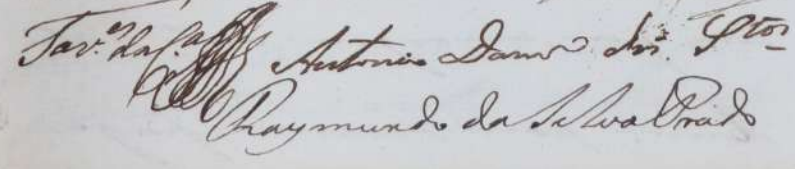 Tav.es da C.a Antonio Damo dos Stos
Raymundo da Silva Prado